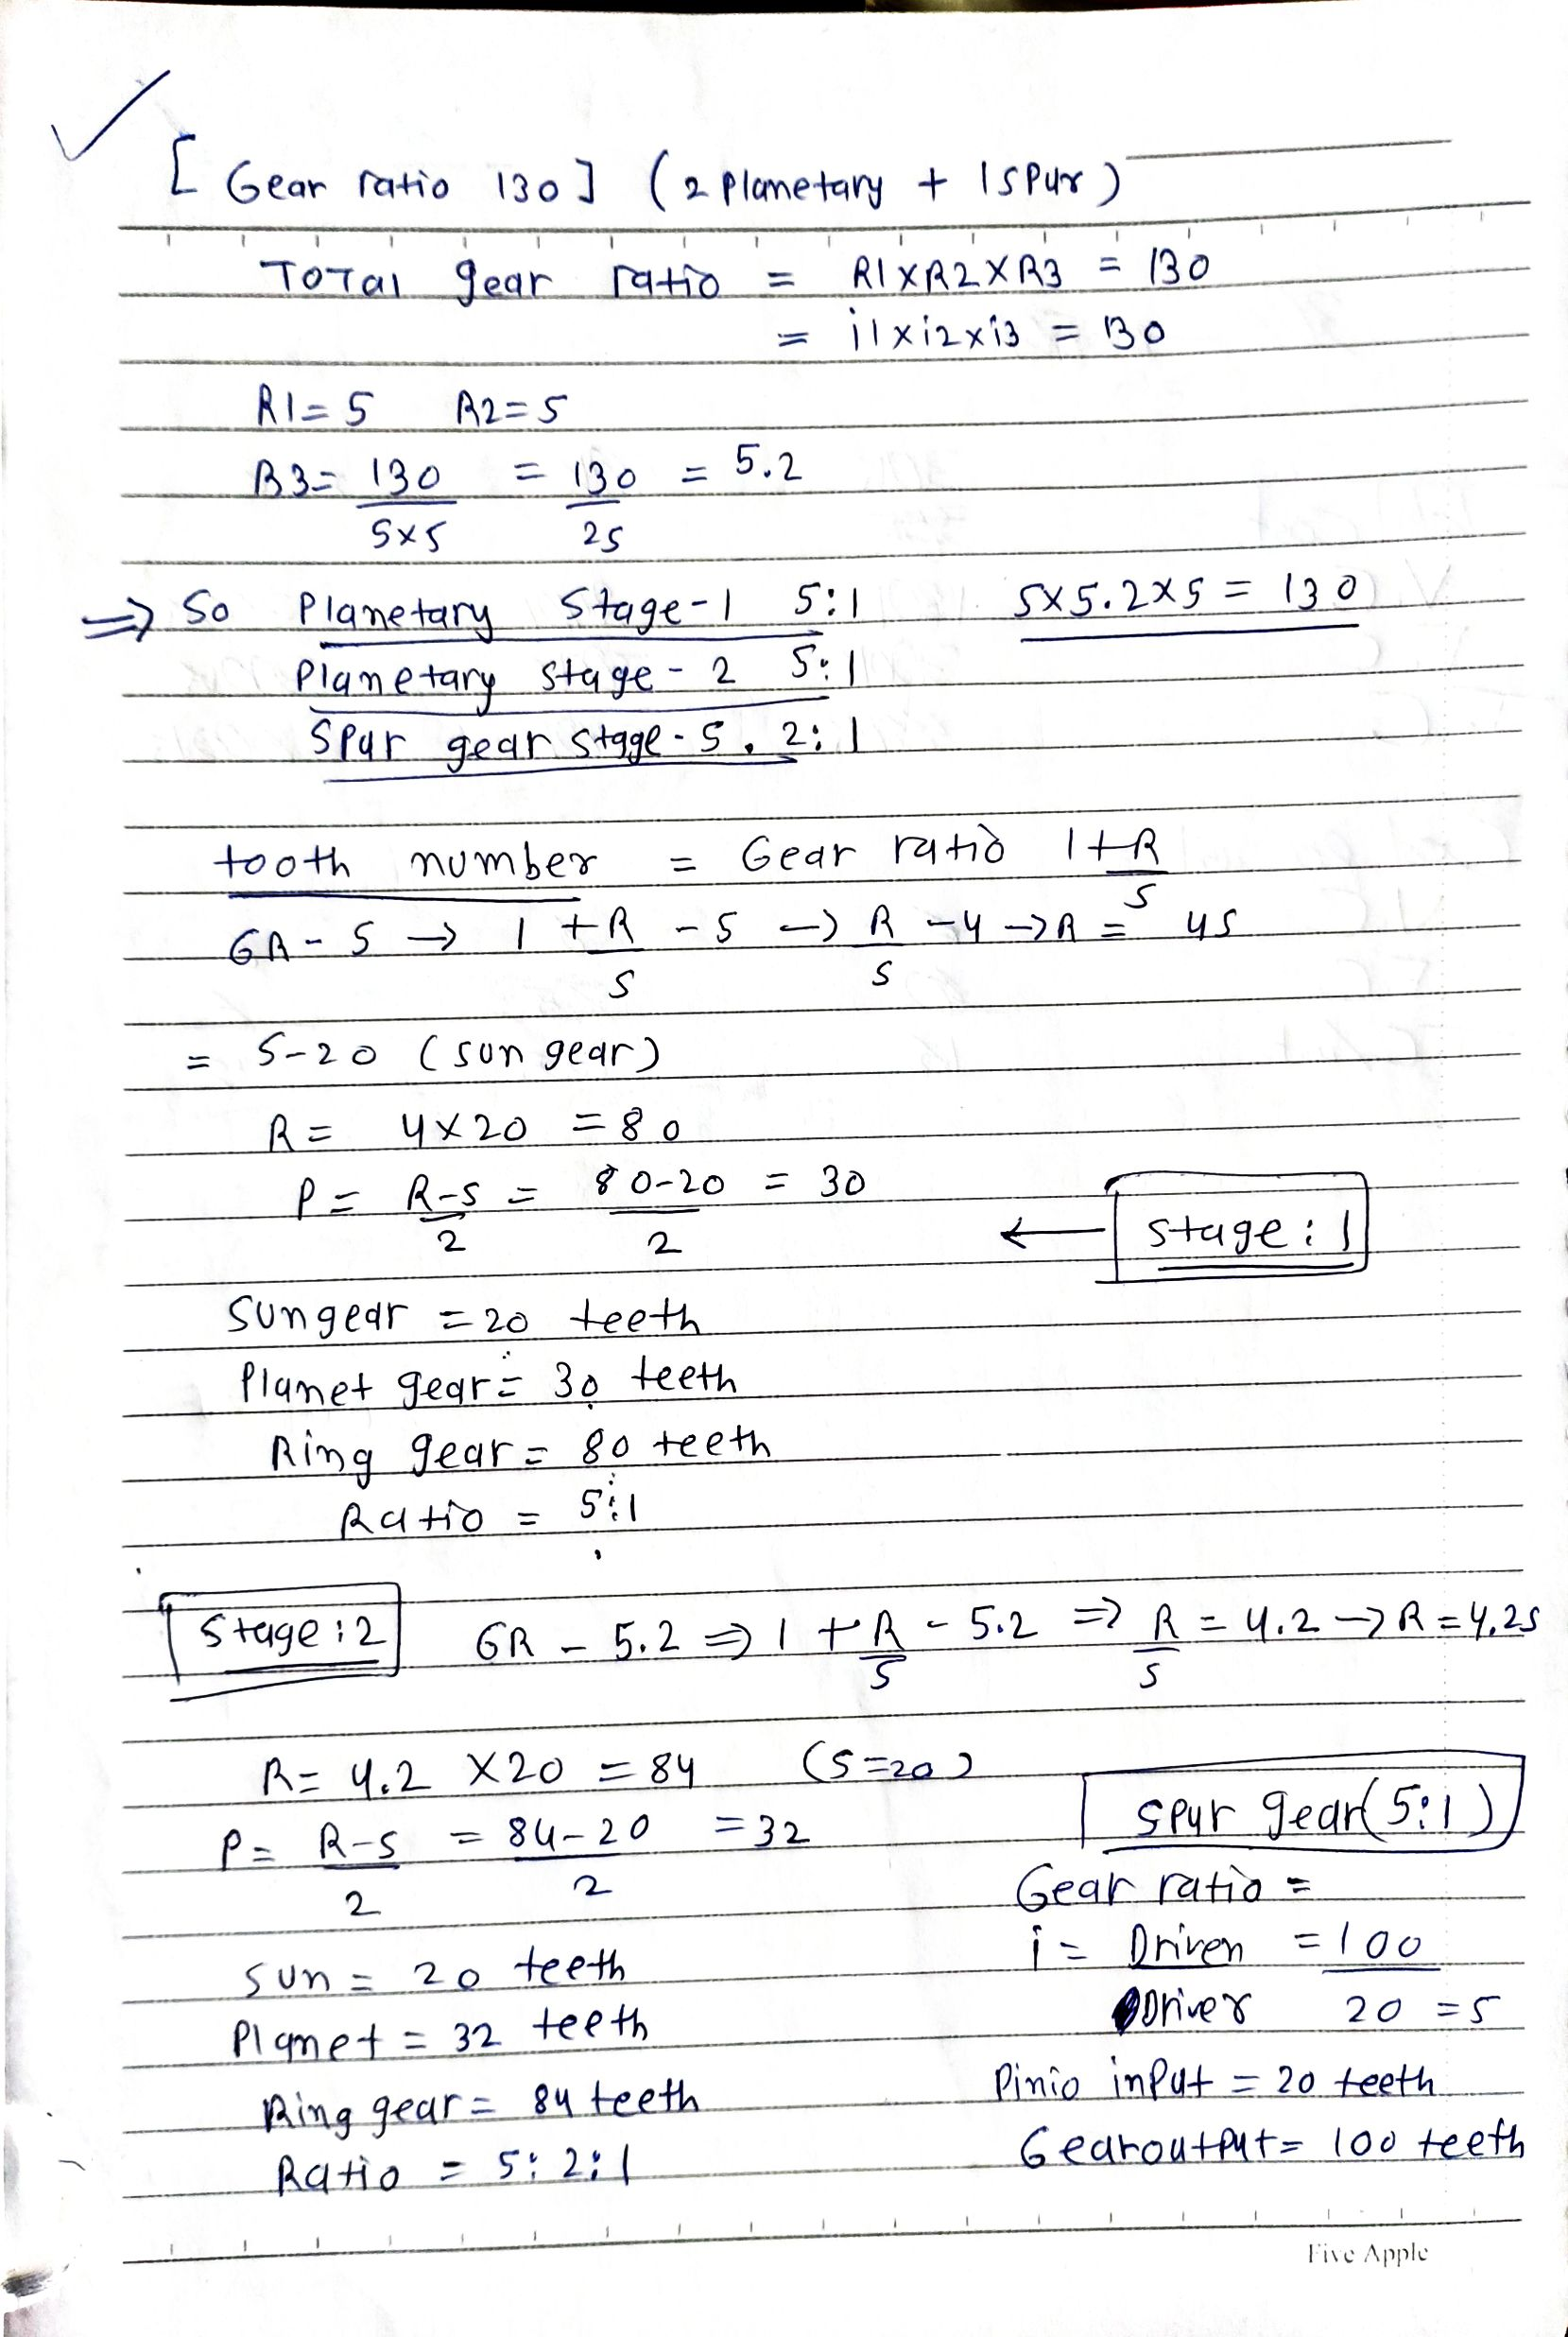 [ Gear ratio 130 ] ( 2 Planetary + 1 SPur )
TOTal gear ratio = R1 X R2 X R3 = 130
= i1 x i2 x i3 = 130
R1 = 5 R2 = 5
R3 = 130 = 130 = 5.2
5x5 25
=> So Planetary Stage-1 5:1 5x5.2x5 = 130
Planetary stage - 2 5:1
SPur gear stage - 5.2:1
tooth number = Gear ratio 1+R
S
GR - 5 → 1 + R - 5 → R - 4 → R = 4S
S S
= S-20 ( sun gear )
R = 4x20 = 80
P = R-S = 80-20 = 30
2 2
← stage : 1
Sun gear = 20 teeth
Planet gear = 30 teeth
Ring gear = 80 teeth
Ratio = 5:1
Stage : 2 GR - 5.2 => 1 + R - 5.2 => R = 4.2 → R = 4.2S
S S
R = 4.2 X 20 = 84 (S=20)
P = R-S = 84-20 = 32
2 2
Sun = 20 teeth
Planet = 32 teeth
Ring gear = 84 teeth
Ratio = 5:2:1
SPur gear (5:1)
Gear ratio =
i = Driven = 100
Driver 20 = 5
Pinio inPut = 20 teeth
Gear outPut = 100 teeth
Five Apple